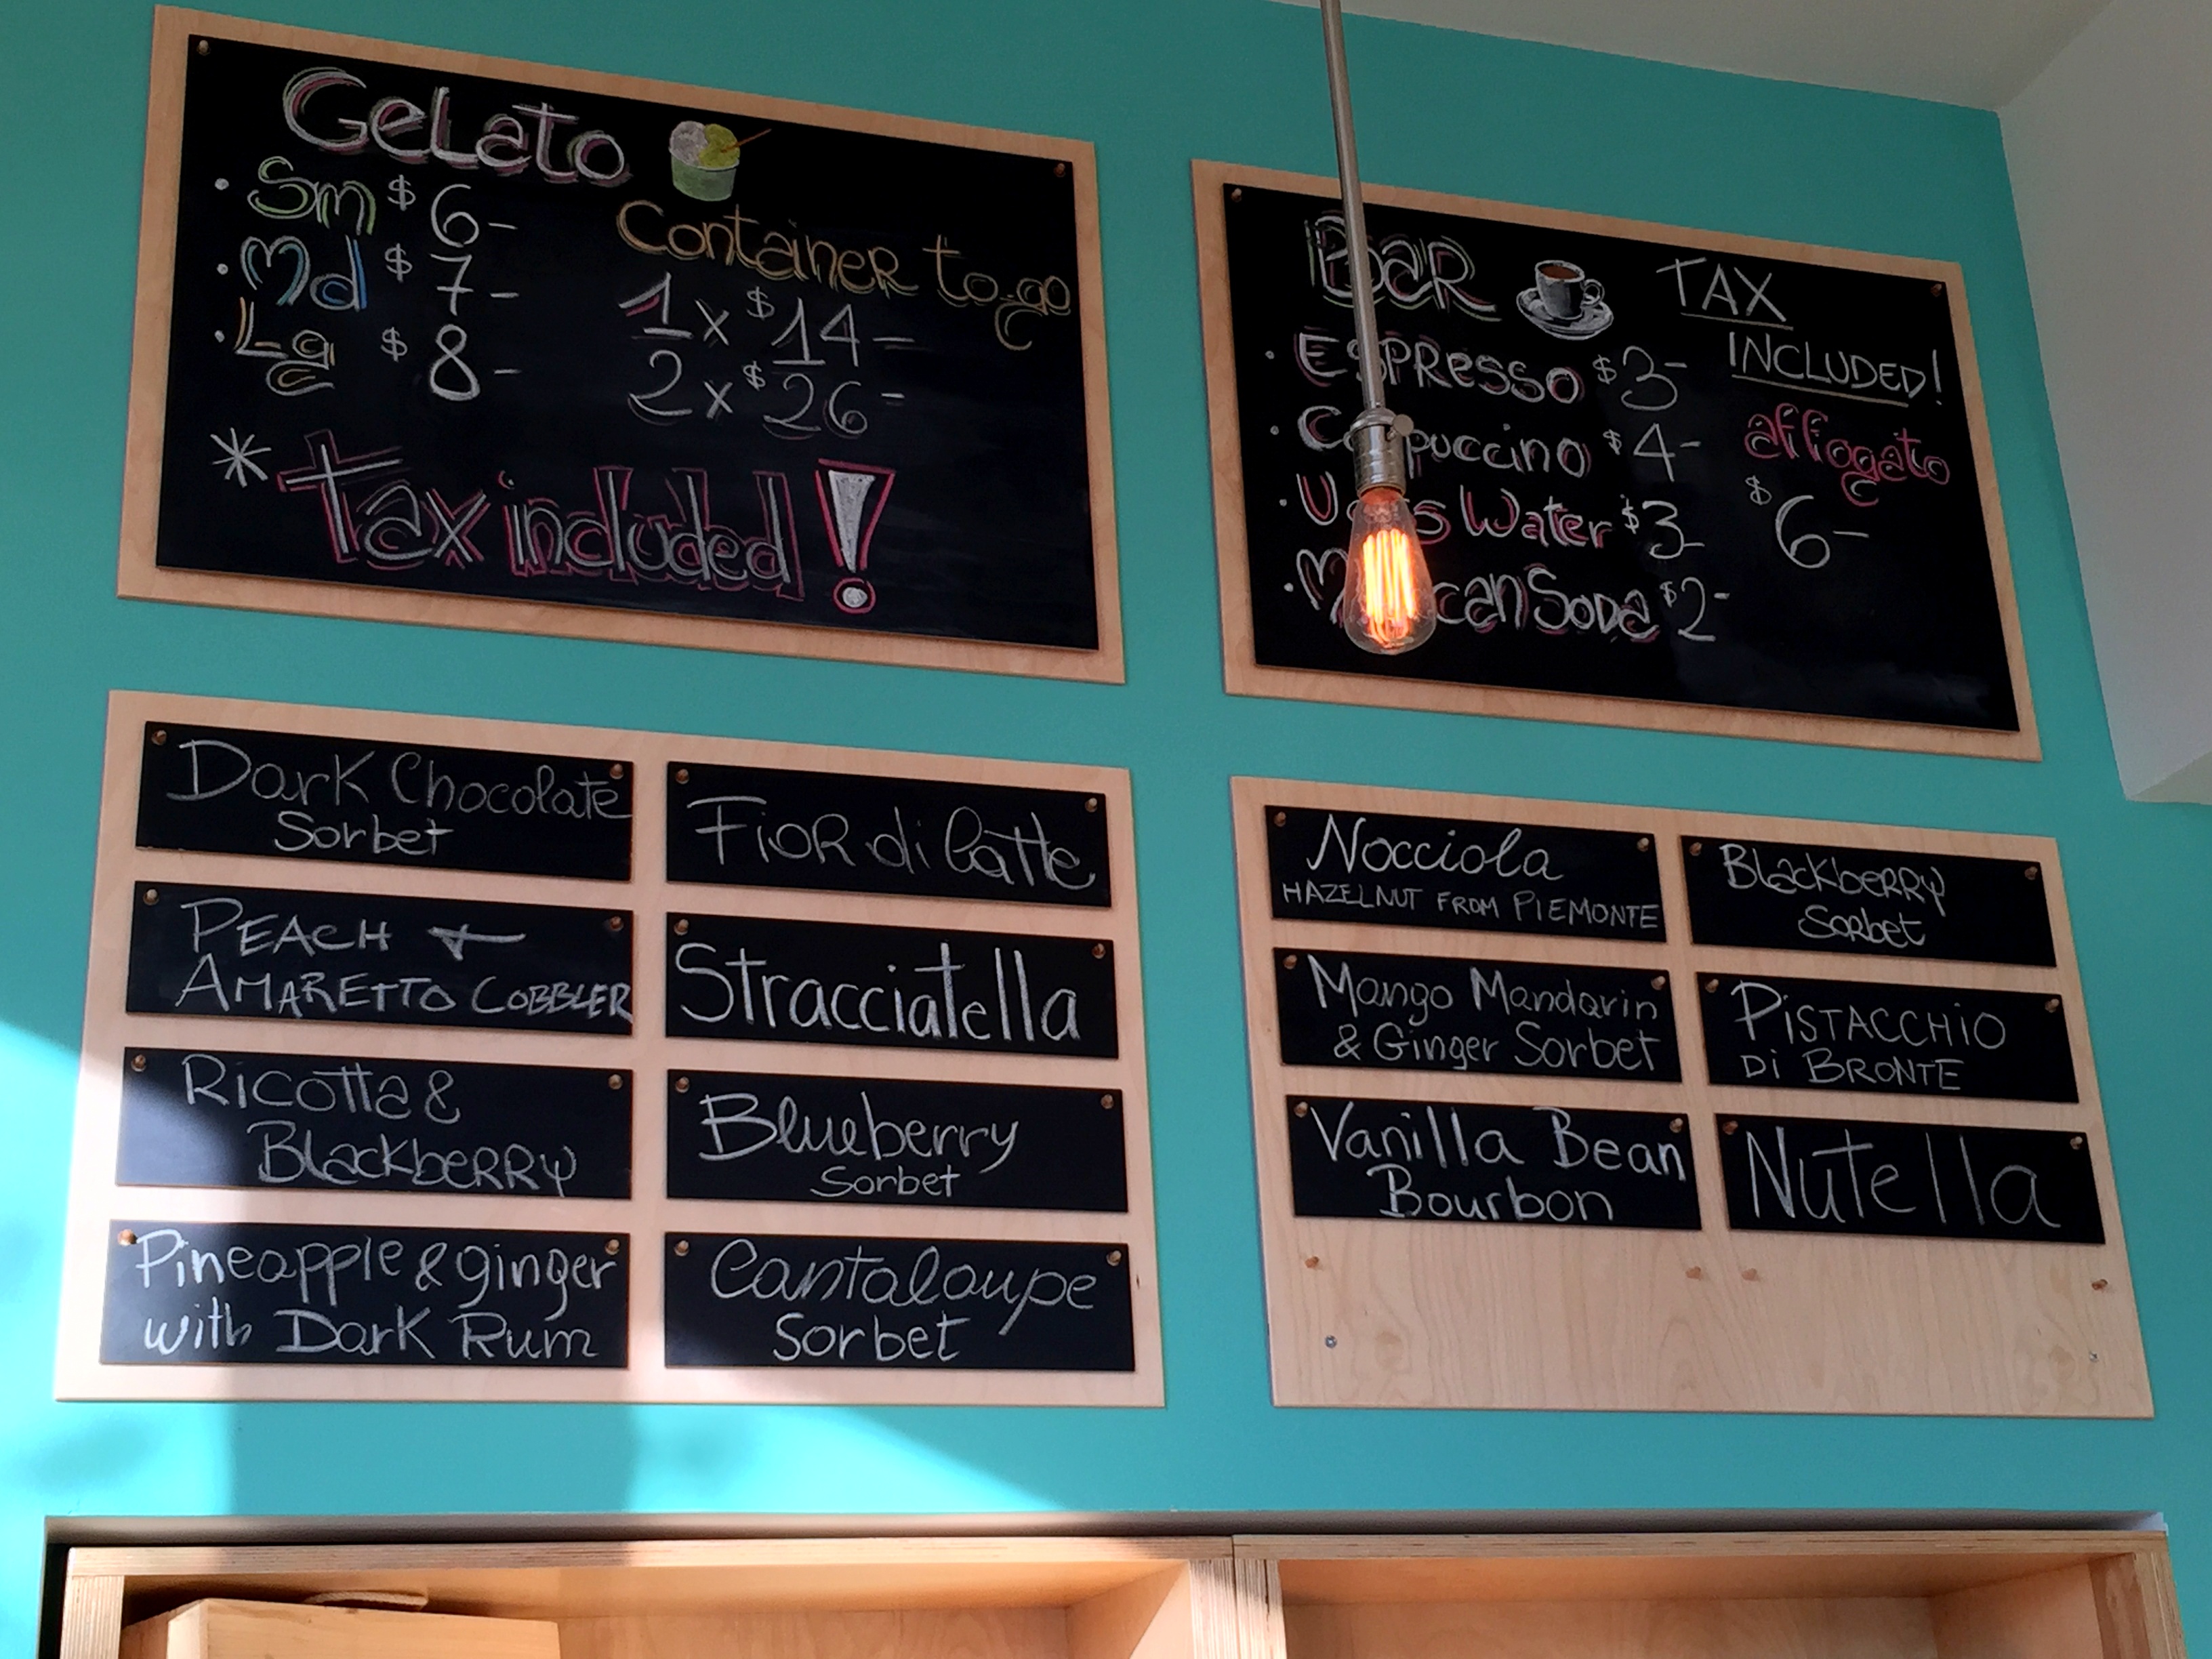 Gelato
• Sm $ 6-
• Md $ 7-
• Lg $ 8-
Container to-go
1 x $ 14-
2 x $ 26-
* tax included!
BaR
TAX
INCLUDED!
• ESPResso $3-
• puccino $4-
• Water $3-
• Soda $2-
affogato
$ 6-
Dark Chocolate
Sorbet
PEACH +
AMARETTO COBBLER
Ricotta &
BlackbeRRy
Pineapple & ginger
with Dark Rum
FioR di latte
Stracciatella
Blueberry
Sorbet
Cantaloupe
Sorbet
Nocciola
HAZELNUT FROM PIEMONTE
Mango Mandarin
& Ginger Sorbet
Vanilla Bean
Bourbon
BlackbeRRy
Sorbet
PiSTACCHiO
Di BRONTE
Nutella